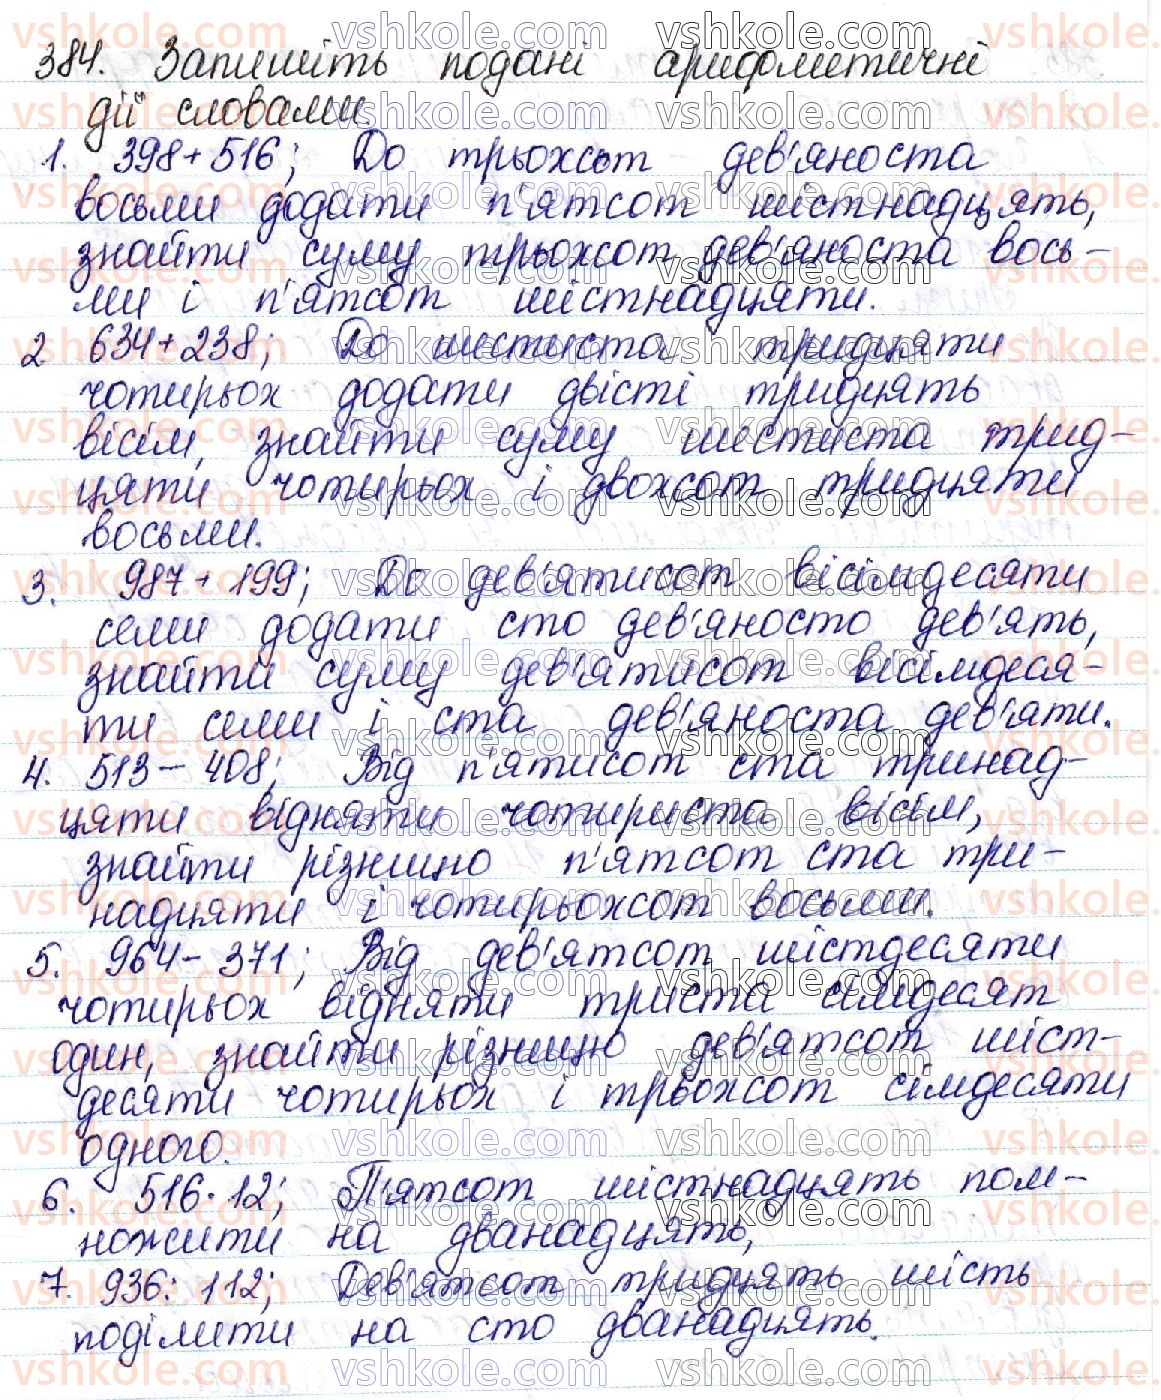 384. Запишіть подані арифметичні
дії словами.
1. 398+516; До трьохсот дев'яноста
восьми додати п'ятсот шістнадцять,
знайти суму трьохсот дев'яноста вось-
ми і п'ятсот шістнадцяти.
2 634+238; До шестиста тридцяти
чотирьох додати двісті тридцять
вісім, знайти суму шестиста трид-
цяти чотирьох і двохсот тридцяти
восьми.
3. 987+199; До дев'ятисот вісімдесяти
семи додати сто дев'яносто дев'ять,
знайти суму дев'ятисот вісімдеся-
ти семи і ста дев'яноста дев'яти.
4. 513-408; Від п'ятисот ста тринад-
цяти відняти чотириста вісім,
знайти різницю п'ятсот ста три-
надцяти і чотирьохсот восьми.
5. 964-371; Від дев'ятсот шістдесяти
чотирьох відняти триста сімдесят
один, знайти різницю дев'ятсот шіст-
десяти чотирьох і трьохсот сімдесяти
одного.
6. 516·12; П'ятсот шістнадцять пом-
ножити на дванадцять,
7. 936:112; Дев'ятсот тридцять шість
поділити на сто дванадцять.